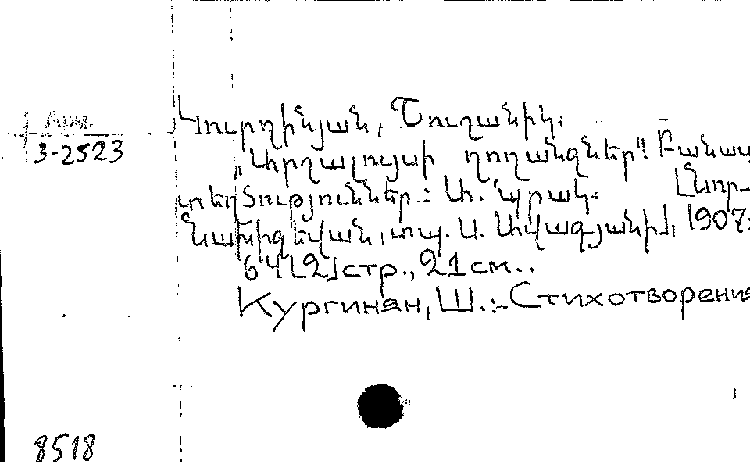 Арм.
3-2523
Կուրղինյան, Շուշանիկ.
„Արշալույսի ղողանջներ": Բանաս
տեղծություններ.: Ա. պրակ. Նոր-
Նախիջեվան, տպ. Ս. Ավագյանի, 1907:
64[2]стр., 21см..
Кургинян, Ш.:-Стихотворения
8518